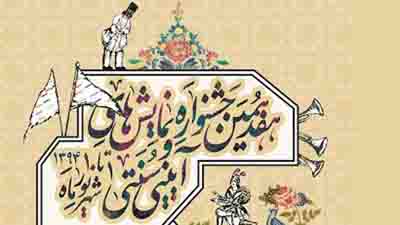 هفدهمین جشنواره نمایش های
آیینی و سنتی
تا ۱۰
شهریور ماه
۱۳۹۴